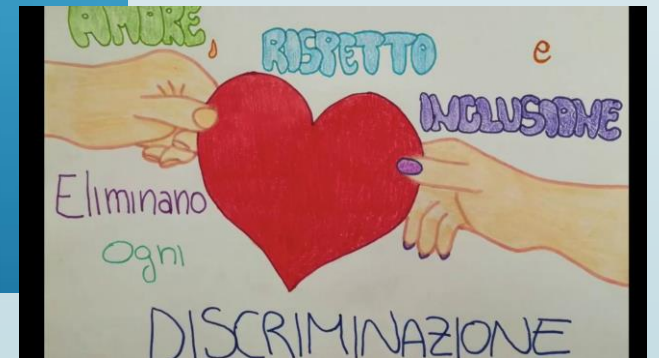 AMORE,
RISPETTO
e
INCLUSIONE
Eliminano
Ogni
DISCRIMINAZIONE